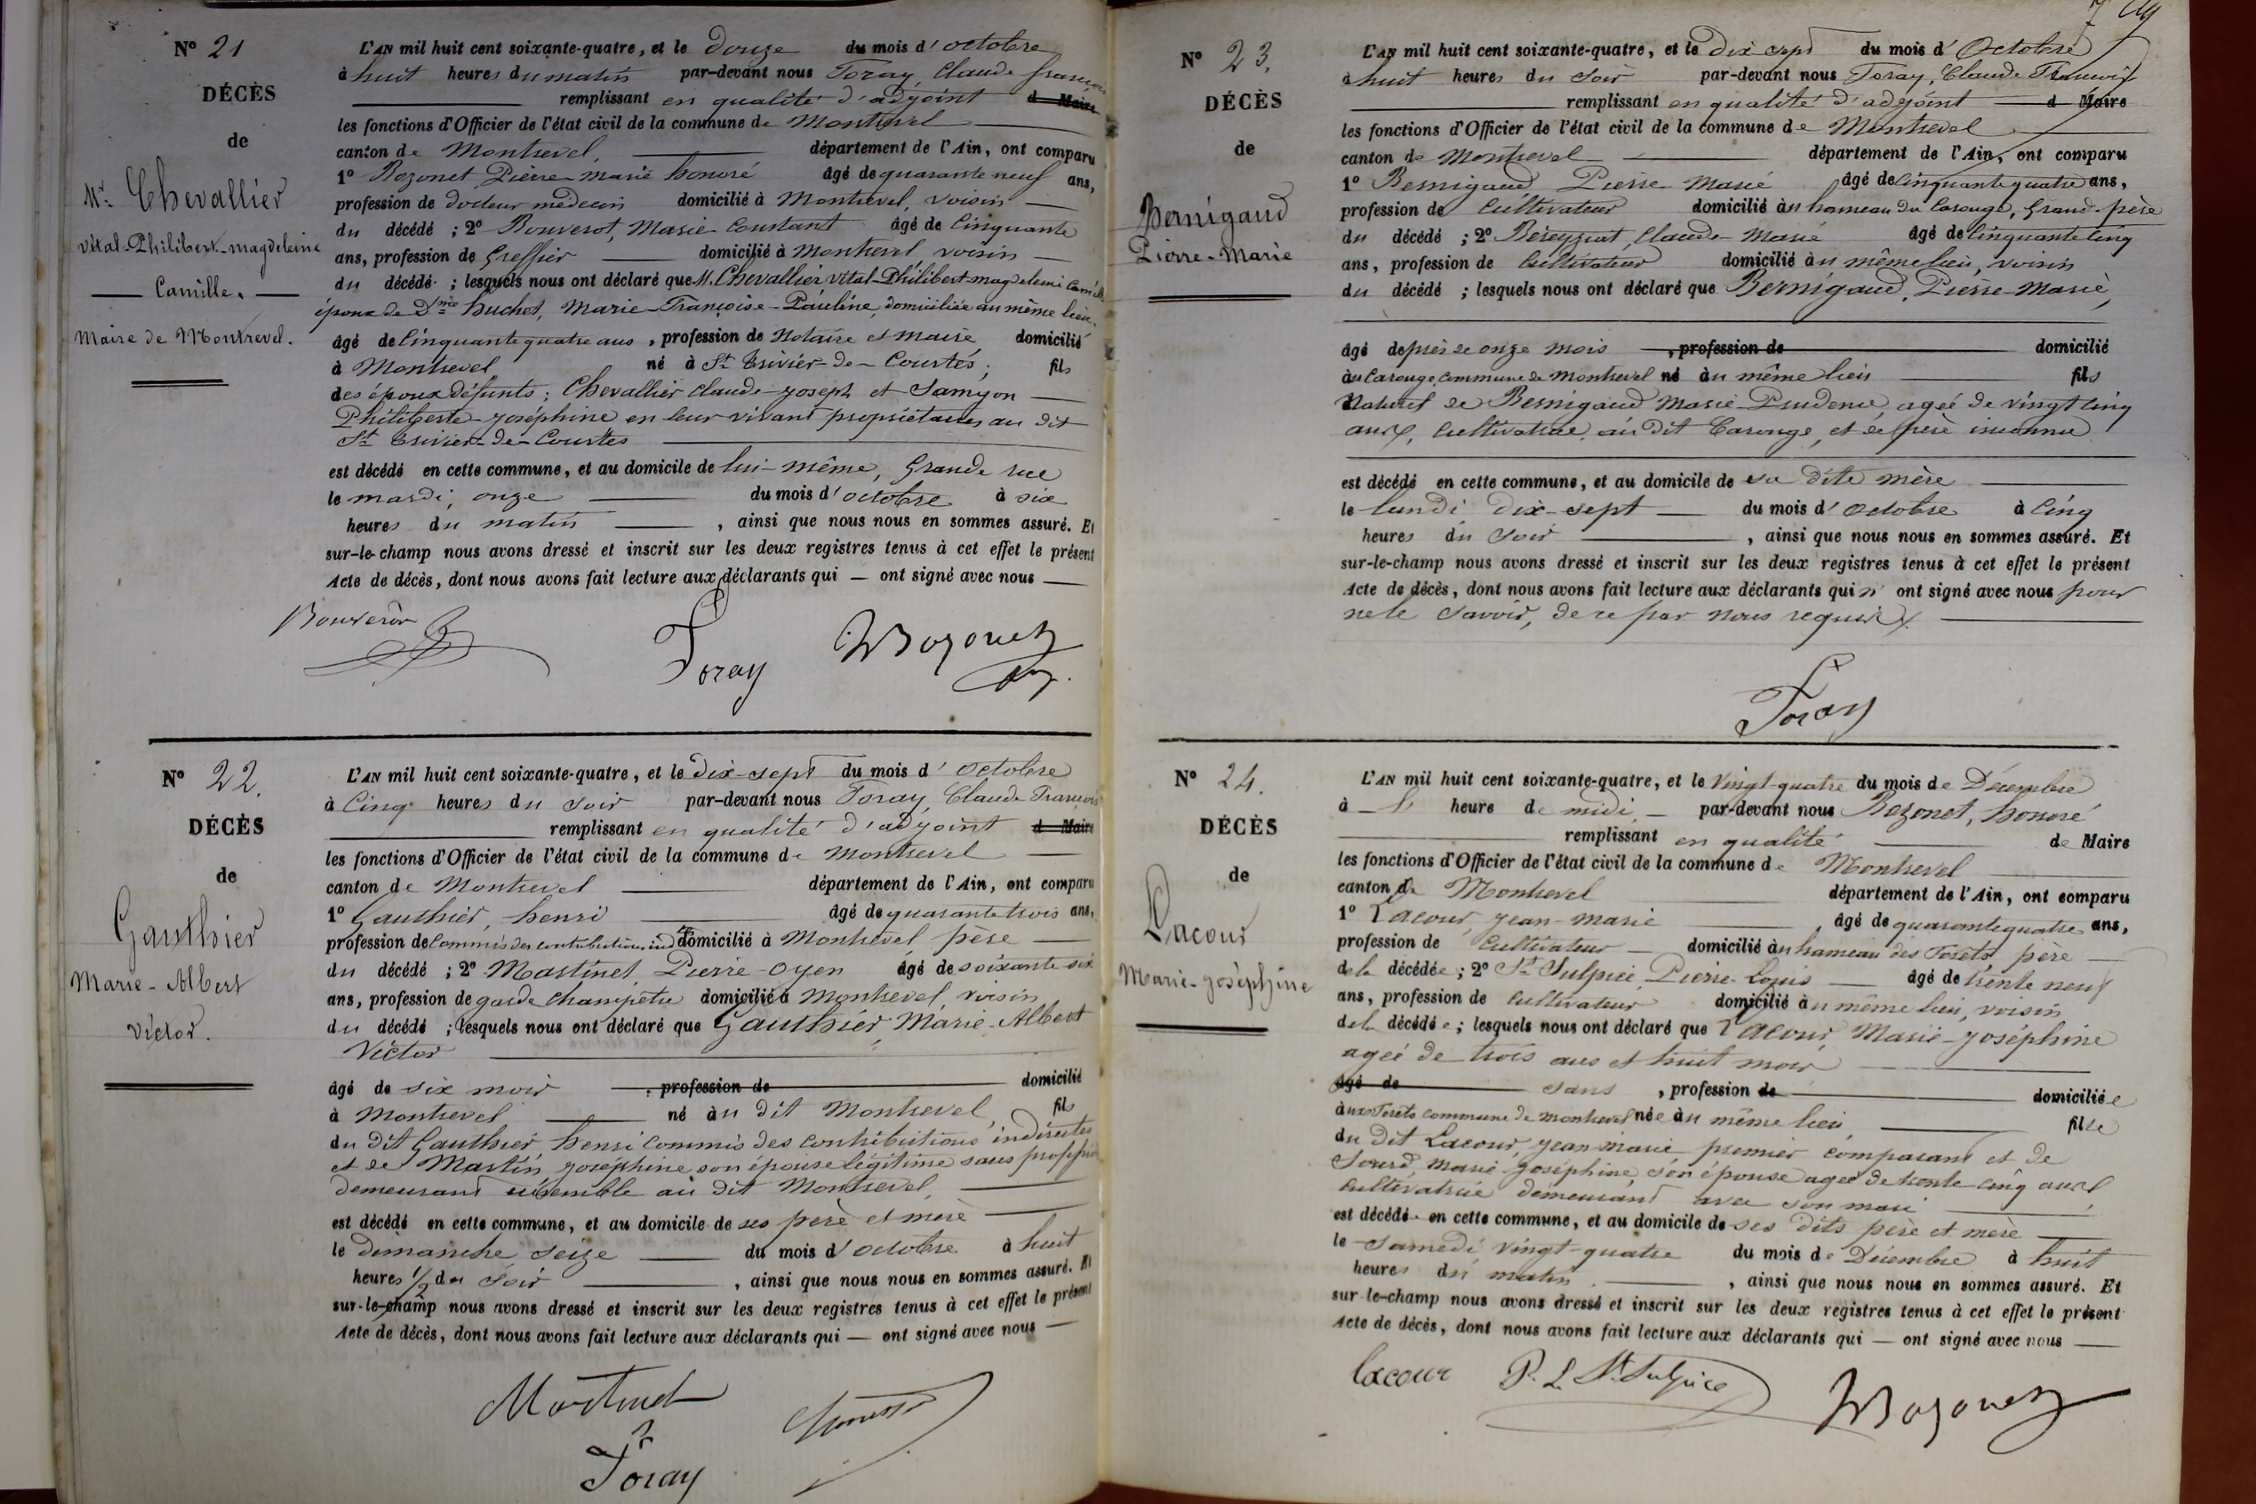 N° 21
DÉCÈS
de
Mr. Chevallier
Vital-Philibert-magdeleine
Camille.
Maire de Montrevel.
L'AN mil huit cent soixante-quatre, et le douze du mois d'octobre
à huit heures du matin par-devant nous Foray, Claude françois
remplissant en qualité d'adjoint d Maire
les fonctions d'Officier de l'état civil de la commune de Montrevel
canton de Montrevel, département de l'Ain, ont comparu
1° Bozonet Pierre-marie honoré âgé de quarante neuf ans,
profession de docteur médecin domicilié à Montrevel, voisin
du décédé ; 2° Bouverot, Marie-Constant âgé de Cinquante
ans, profession de Greffier domicilié à Montrevel, voisin
du décédé ; lesquels nous ont déclaré que M. Chevallier vital-Philibert-magdeleine Camille
époux de Dme huchet, Marie-Françoise-Pauline, domiciliée au même lieu,
âgé de Cinquante quatre ans, profession de Notaire et maire domicilié
à Montrevel né à St Trivier-de-Courtes, fils
des époux défunts ; Chevallier Claude-joseph et Samyon
Philiberte-joséphine en leur vivant propriétaires au dit
St Trivier-de-Courtes
est décédé en cette commune, et au domicile de lui-même, Grande rue
le mardi, onze du mois d'octobre à six
heures du matin , ainsi que nous nous en sommes assuré. Et
sur-le-champ nous avons dressé et inscrit sur les deux registres tenus à cet effet le présent
Acte de décès, dont nous avons fait lecture aux déclarants qui — ont signé avec nous
Bouverot Foray Bozonet
N° 22.
DÉCÈS
de
Gauthier
Marie-Albert
victor.
L'AN mil huit cent soixante-quatre, et le dix-sept du mois d'octobre
à Cinq heures du soir par-devant nous Foray, Claude François
remplissant en qualité d'adjoint d Maire
les fonctions d'Officier de l'état civil de la commune de Montrevel
canton de Montrevel département de l'Ain, ont comparu
1° Gauthier, henri âgé de quarante trois ans,
profession de Commis des contributions indtes domicilié à Montrevel, père
du décédé ; 2° Martinet, Pierre-oyen âgé de soixante-six
ans, profession de garde champêtre domicilié à Montrevel, voisin
du décédé ; lesquels nous ont déclaré que Gauthier, Marie-Albert
Victor
âgé de six mois , profession de domicilié
à Montrevel né au dit Montrevel, fils
du dit Gauthier, henri commis des contributions indirectes
et de Martin josephine son épouse légitime sans profession
demeurant ensemble au dit Montrevel,
est décédé en cette commune, et au domicile de ses père et mère
le dimanche seize du mois d'octobre à huit
heures 1/2 du soir , ainsi que nous nous en sommes assuré. Et
sur-le-champ nous avons dressé et inscrit sur les deux registres tenus à cet effet le présent
Acte de décès, dont nous avons fait lecture aux déclarants qui — ont signé avec nous
Martinet
Foray
N° 23.
DÉCÈS
de
Bernigaud
Pierre-Marie
L'AN mil huit cent soixante-quatre, et le dix sept du mois d'Octobre
à huit heures du soir par-devant nous Foray, Claude François
remplissant en qualité d'adjoint d Maire
les fonctions d'Officier de l'état civil de la commune de Montrevel
canton de Montrevel département de l'Ain, ont comparu
1° Bernigaud Pierre-Marie âgé de Cinquante quatre ans,
profession de Cultivateur domicilié au hameau du Carouge, Grand-père
du décédé ; 2° Béreyziat, Claude-Marie âgé de Cinquante Cinq
ans, profession de Cultivateur domicilié au même lieu, voisin
du décédé ; lesquels nous ont déclaré que Bernigaud, Pierre-Marie,
âgé de près de onze mois , profession de domicilié
au Carouge, commune de Montrevel né au même lieu fils
Naturel de Bernigaud Marie-Prudence, agée de vingt Cinq
ans, Cultivatrice au dit Carouge, et de père inconnu
est décédé en cette commune, et au domicile de sa dite mère
le lundi dix-sept du mois d'octobre à Cinq
heures du soir , ainsi que nous nous en sommes assuré. Et
sur-le-champ nous avons dressé et inscrit sur les deux registres tenus à cet effet le présent
Acte de décès, dont nous avons fait lecture aux déclarants qui n' ont signé avec nous pour
ne le savoir, de ce par nous requis.
Foray
N° 24.
DÉCÈS
de
Lacour
Marie-joséphine
L'AN mil huit cent soixante-quatre, et le Vingt-quatre du mois de Décembre
à heure de midi par-devant nous Bozonet, honoré
remplissant en qualité de Maire
les fonctions d'Officier de l'état civil de la commune de Montrevel
canton de Montrevel département de l'Ain, ont comparu
1° Lacour, jean-marie âgé de quarante quatre ans,
profession de Cultivateur domicilié au hameau des Forêts père
de la décédée ; 2° St Sulpice, Pierre-Louis âgé de trente neuf
ans, profession de Cultivateur domicilié au même lieu, voisin
de la décédée ; lesquels nous ont déclaré que Lacour, Marie-joséphine
agée de trois ans et huit mois
âgé de sans , profession de domiciliée
aux Forêts commune de Montrevel née au même lieu, fille
du dit Lacour, jean-marie premier comparant et de
Sourd, Marie-joséphine, son épouse agée de trente cinq ans
Cultivatrice demeurant avec son mari
est décédé en cette commune, et au domicile de ses dits père et mère
le samedi vingt-quatre du mois de Décembre à huit
heures du matin , ainsi que nous nous en sommes assuré. Et
sur-le-champ nous avons dressé et inscrit sur les deux registres tenus à cet effet le présent
Acte de décès, dont nous avons fait lecture aux déclarants qui — ont signé avec nous
lacour P. L. St. Sulpice Bozonet